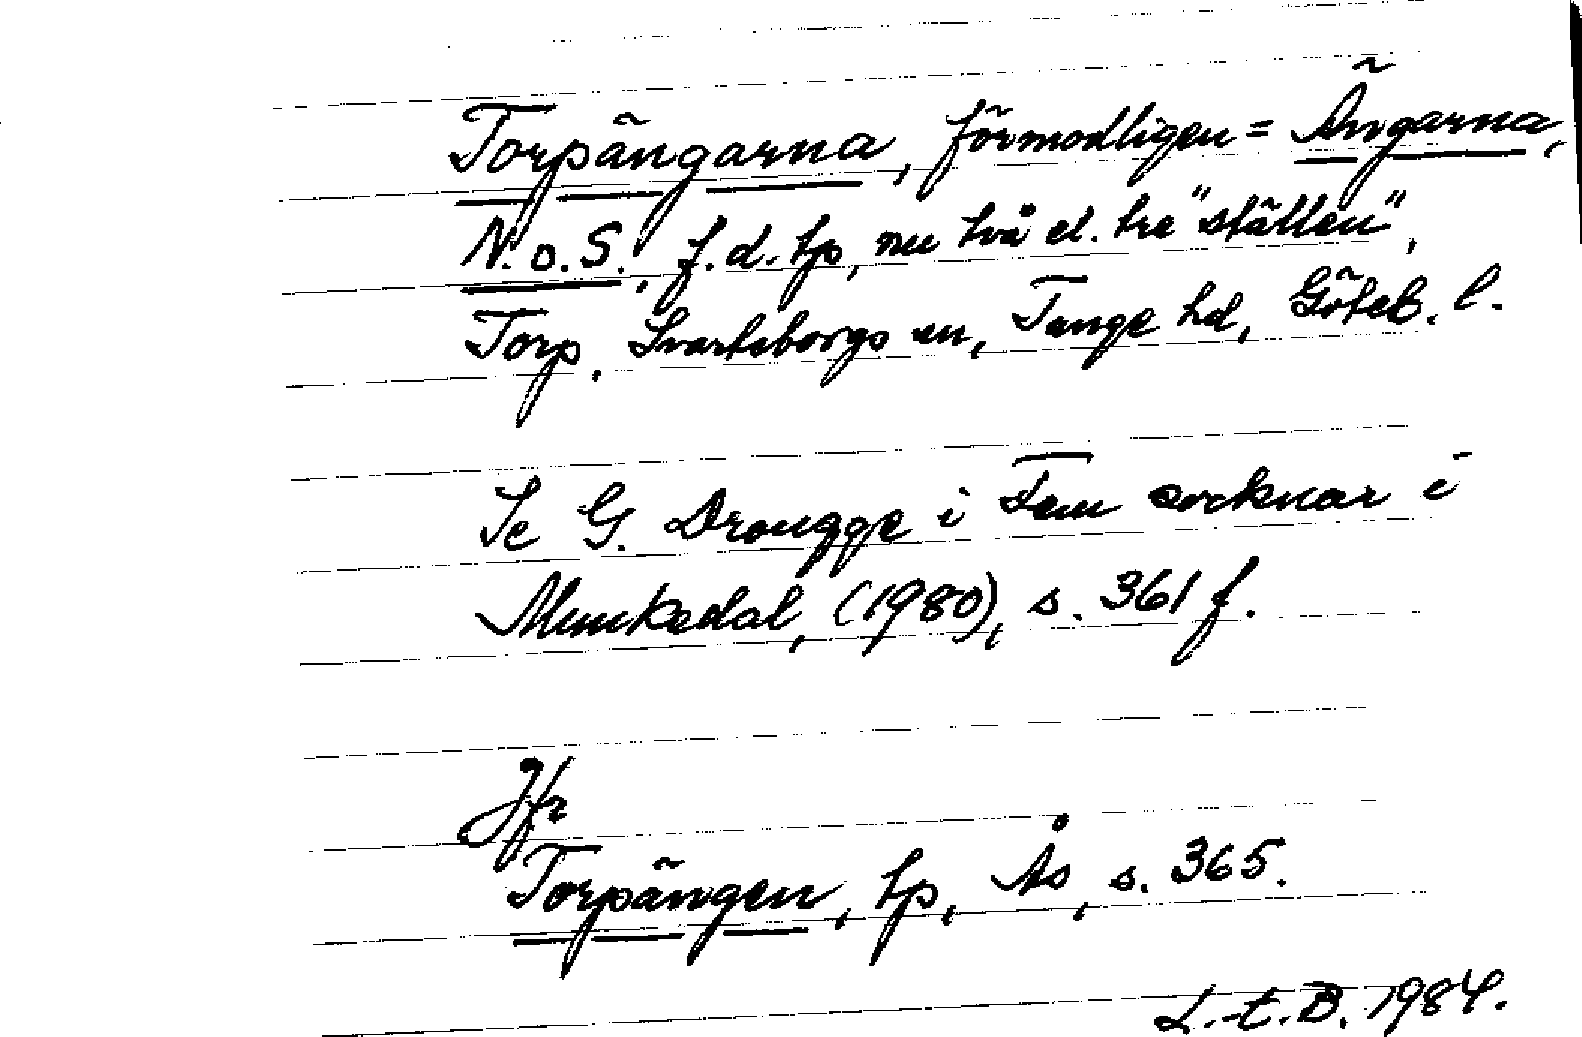 Torpängarna, förmodligen = Ängarna,
N. o. S., f. d. tp, nu två el. tre "ställen",
Torp. Svarteborgs sn, Tunge hd, Göteb. l.
Se G. Drougge i Fem socknar i
Munkedal, (1980), s. 361 f.
Jfr
Torpängen, tp, Ås, s. 365.
L.-E. B. 1984.